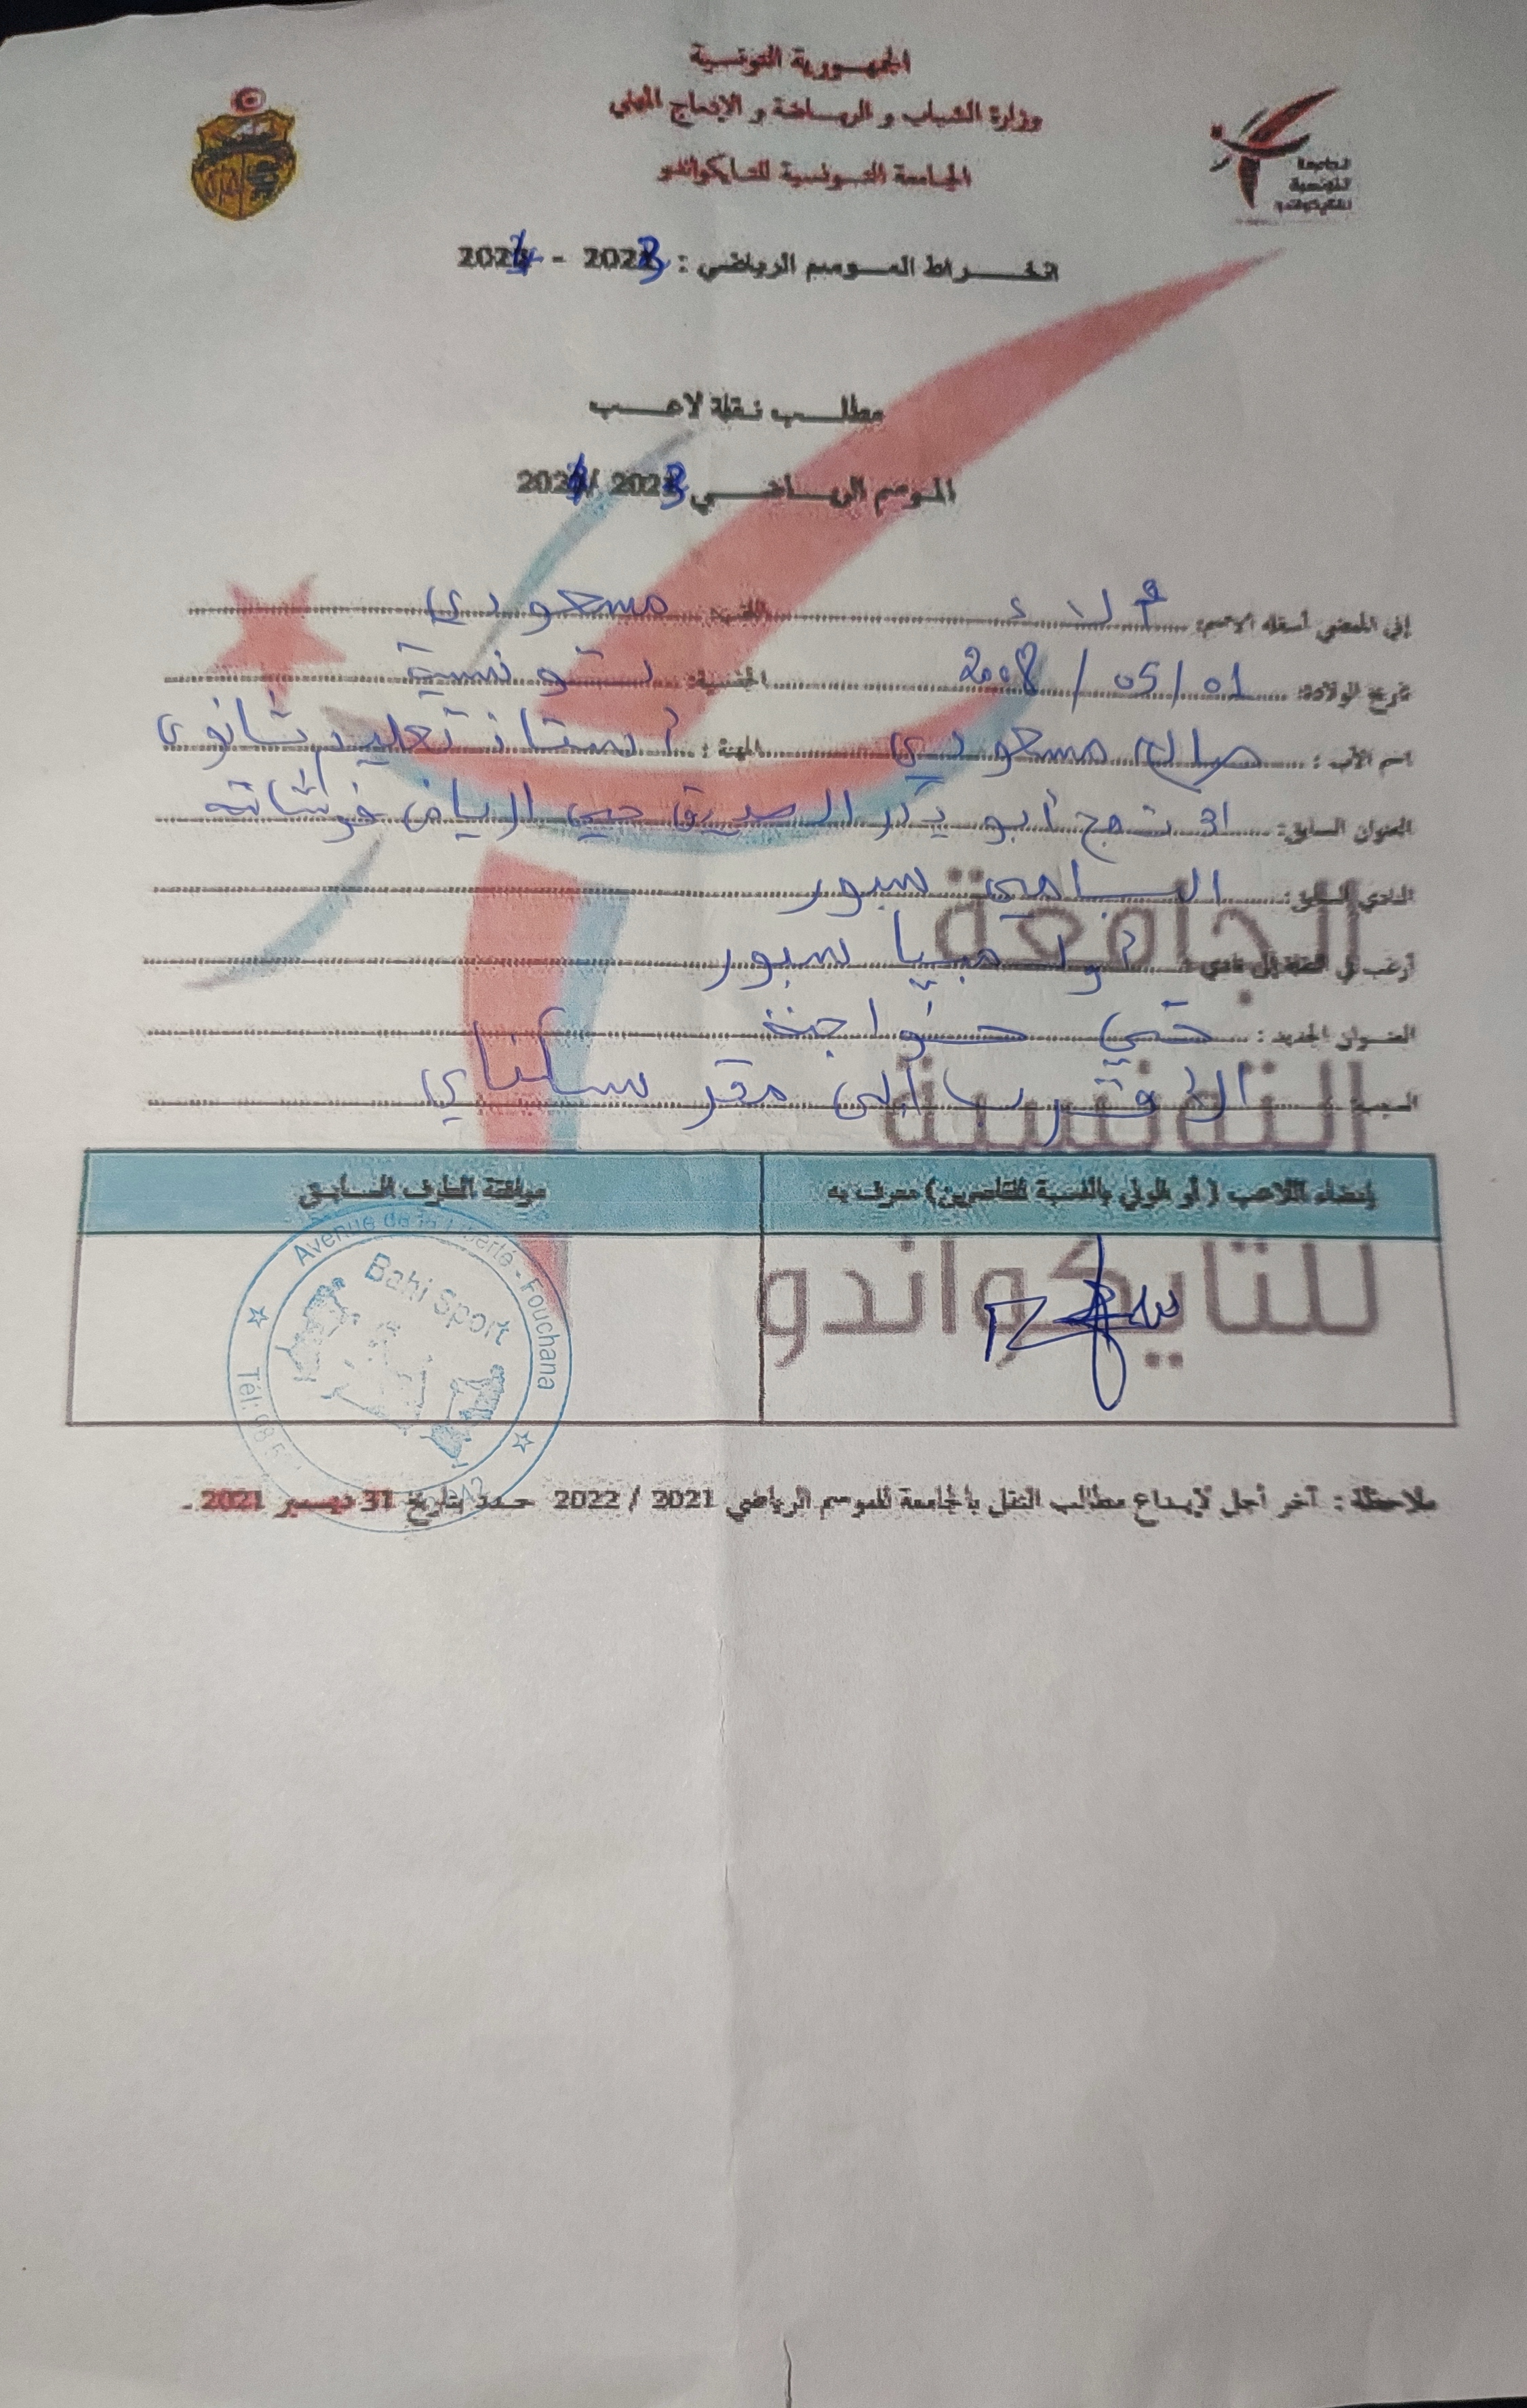 الجمهورية التونسية
وزارة الشباب و الرياضة و الإدماج المهني
الجامعة التونسية للتايكواندو
الجامعة
التونسية
للتايكواندو
انخراط الموسم الرياضي : 2023 - 2024
مطلب نقلة لاعب
الموسم الرياضي 2023 / 2024
إني الممضي أسفله الاسم: ولاء اللقب: مسعودي
تاريخ الولادة: 01 / 05 / 2008 الجنسية: تونسية
اسم الأب : صالح مسعودي المهنة : أستاذ تعليم ثانوي
العنوان السابق: 31 نهج أبو بكر الصديق حي الرياض فوشانة
النادي السابق: الباهي سبور
أرغب في النقلة إلى نادي : أولمبيا سبور
العنوان الجديد : حي خواجة
السبب: الأقرب إلى مقر سكناي
إمضاء اللاعب ( أو الولي بالنسبة للقاصرين) معرف به
موافقة الطرف السابق
الجامعة
التونسية
للتايكواندو
Avenue de la Liberté - Fouchana
Bahi Sport
Tél: 98
ملاحظة : آخر أجل لإيداع مطالب النقل بالجامعة للموسم الرياضي 2021 / 2022 حدد بتاريخ 31 ديسمبر 2021 .